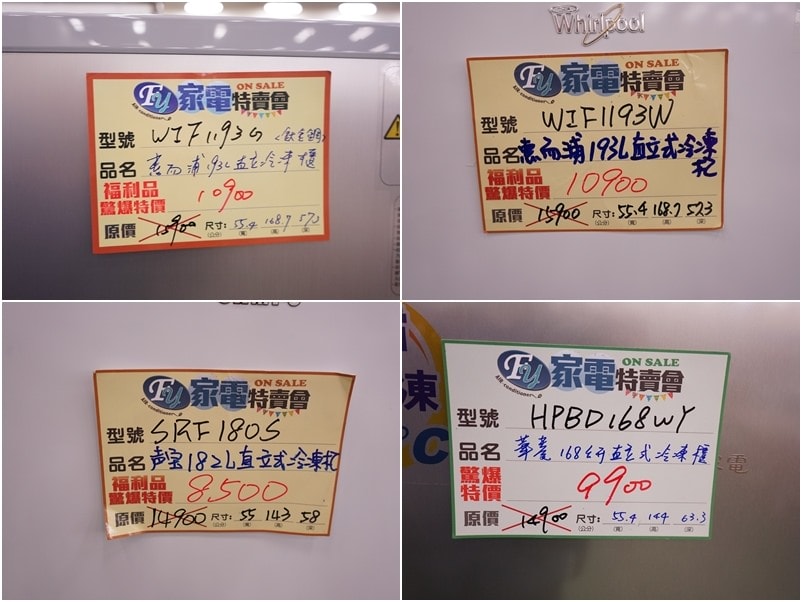 FU 家電特賣會 ON SALE
Air conditioner
型號 WIF1193G (鈦金鋼)
品名 惠而浦193L直立式冷凍櫃
福利品
驚爆特價 10900
原價 15900 尺寸: 55.4 168.7 57.3
(公分) (寬) (高) (深)
Whirlpool
FU 家電特賣會 ON SALE
Air conditioner
型號 WIF1193W
品名 惠而浦193L直立式冷凍柜
福利品
驚爆特價 10900
原價 15900 尺寸: 55.4 168.7 57.3
(公分) (寬) (高) (深)
FU 家電特賣會 ON SALE
Air conditioner
型號 SRF180S
品名 声宝182L直立式冷凍柜
福利品
驚爆特價 8500
原價 14900 尺寸: 55 143 58
(公分) (寬) (高) (深)
凍
°C
電
FU 家電特賣會 ON SALE
Air conditioner
型號 HPBD168WY
品名 華菱168公升直立式冷凍櫃
驚爆
特價 9900
原價 14900 尺寸: 55.4 144 63.3
(公分) (寬) (高) (深)